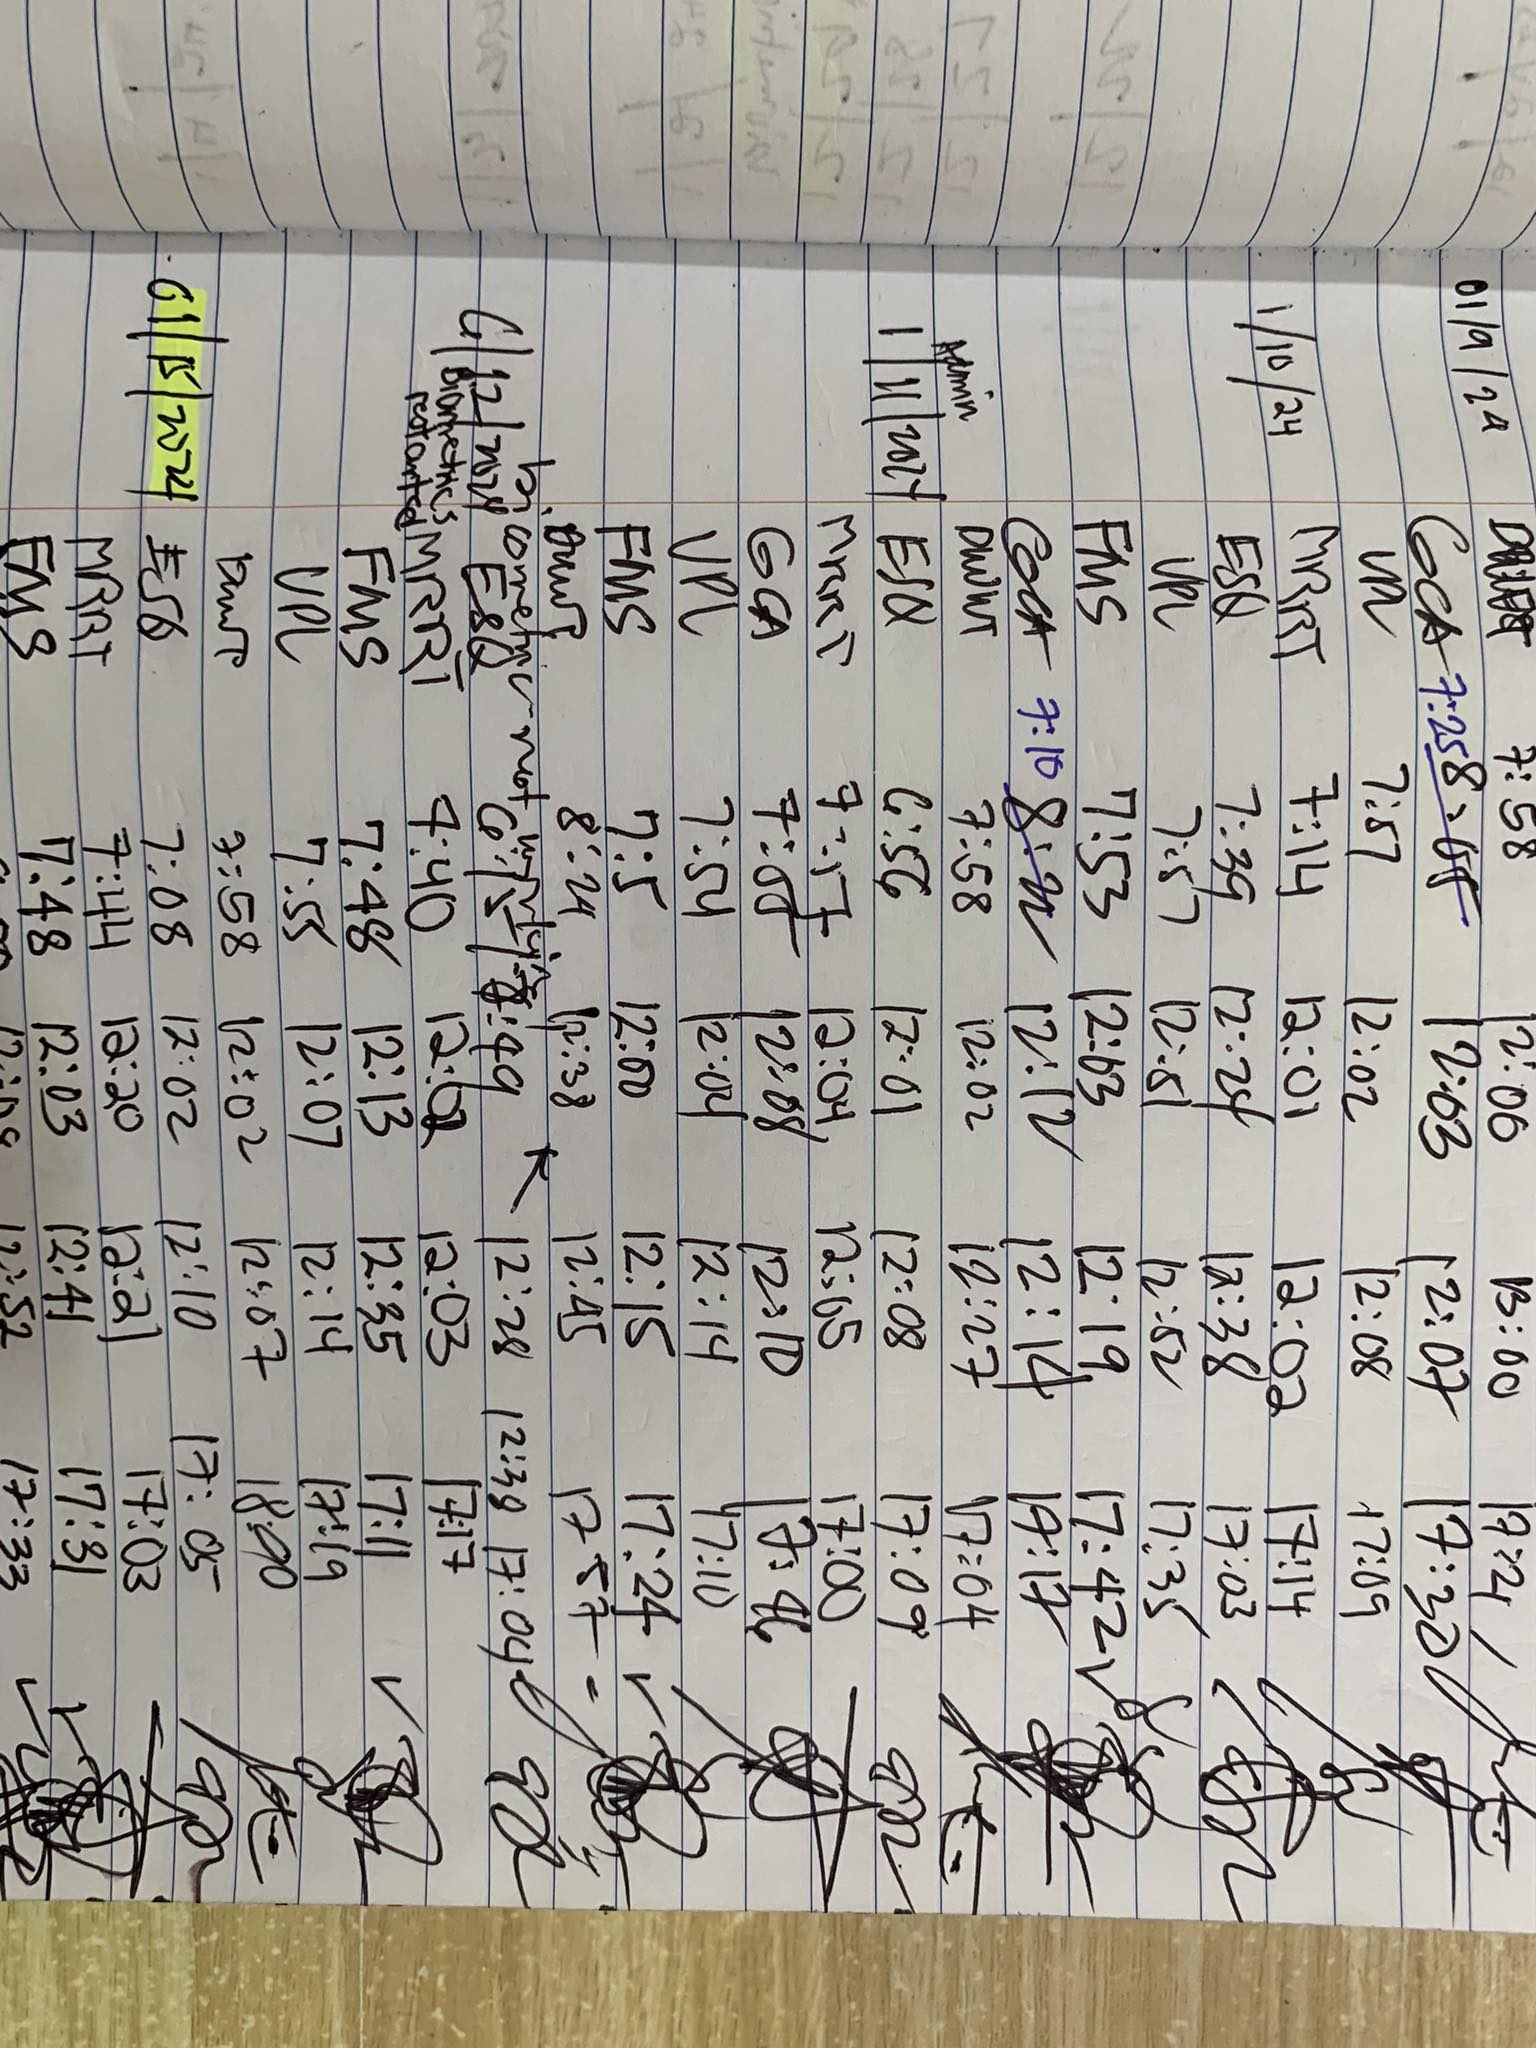 01/9/24 DWWT 7:58 12:06 13:00 17:24
GCA 7:25 12:03 12:07 17:30
VPL 7:57 12:02 12:08 17:09
MRRT 7:14 12:01 12:02 17:14
1/10/24 ESQ 7:39 12:24 12:38 17:03
VPL 7:57 12:51 12:52 17:35
FMS 7:53 12:03 12:19 17:42
GCA 7:10 12:12 12:14 17:17
Admin DWWT 7:58 12:02 12:27 17:04
1/11/2024 ESQ 6:56 12:01 12:08 17:09
MRRT 7:17 12:04 12:05 17:00
GCA 7:55 12:08 12:10 17:46
VPL 7:54 12:04 12:14 17:10
FMS 7:5 12:00 12:15 17:24
DWWT 8:24 12:38 12:45 17:57
biometric not
1/12/2024 ESQ 12:28 12:38 17:04
Biometrics MRRT 7:40 12:02 12:03 17:17
restarted
FMS 7:48 12:13 12:35 17:11
VPL 7:55 12:07 12:14 17:19
DWWT 7:58 12:02 12:07 18:00
01/15/2024 ESQ 7:08 12:02 12:10 17:05
MRRT 7:44 12:20 12:21 17:03
FMS 7:48 12:03 12:41 17:31
12:52 17:33